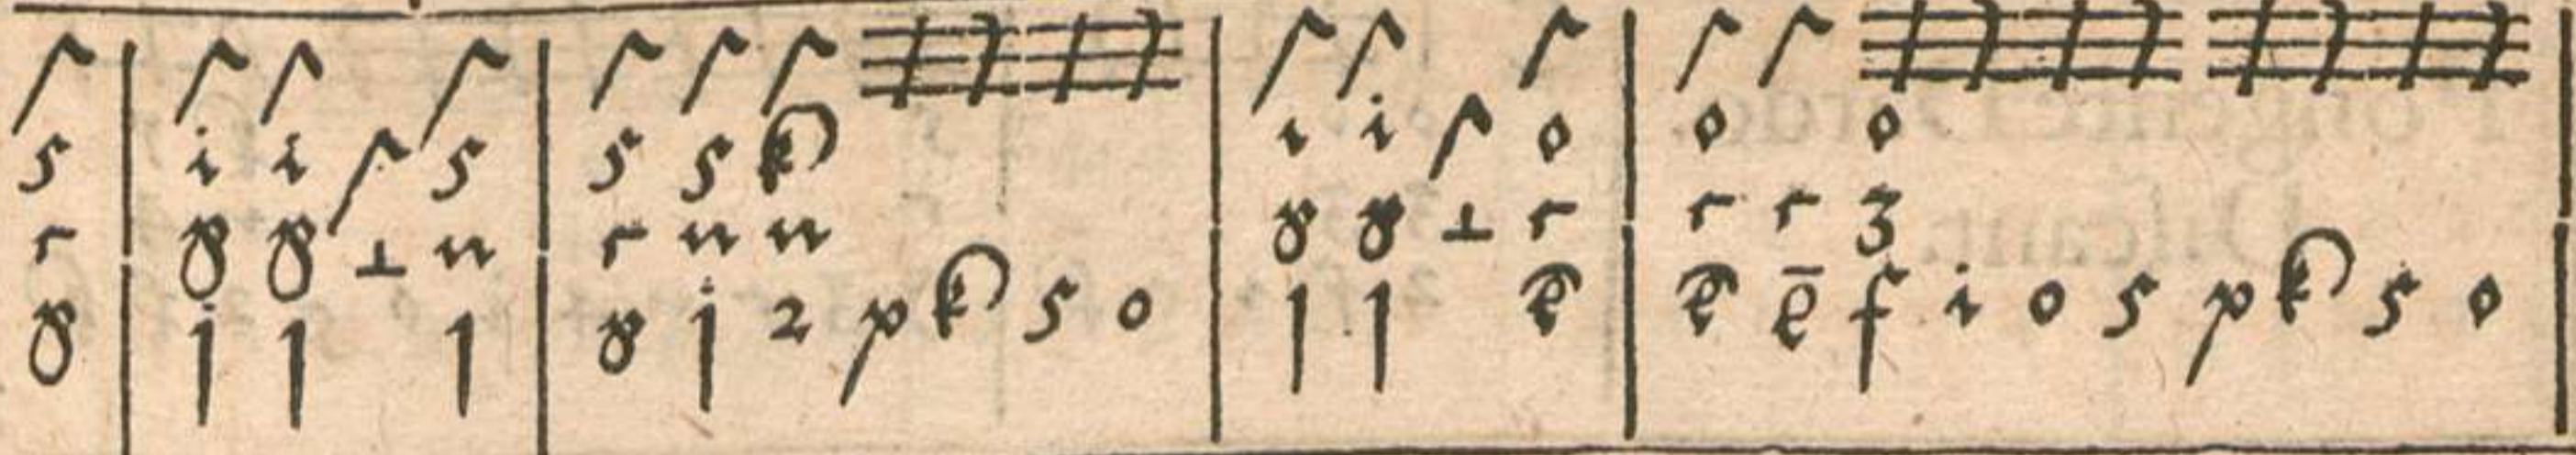 5 | i i 5 | 5 5 k | i i o | o o
r | 8 8 ⊥ n | r n n | 8 8 ⊥ r | r r 3
8 | j 1 1 | 8 j 2 p k 5 o | 1 1 e | e ē f i o 5 p k 5 o